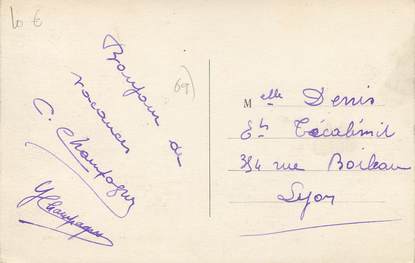 10 €
69
Bonjour de
vacances
C. Champagne
Y Champagne
Melle Denis
Ets Técalémit
354 rue Boileau
Lyon